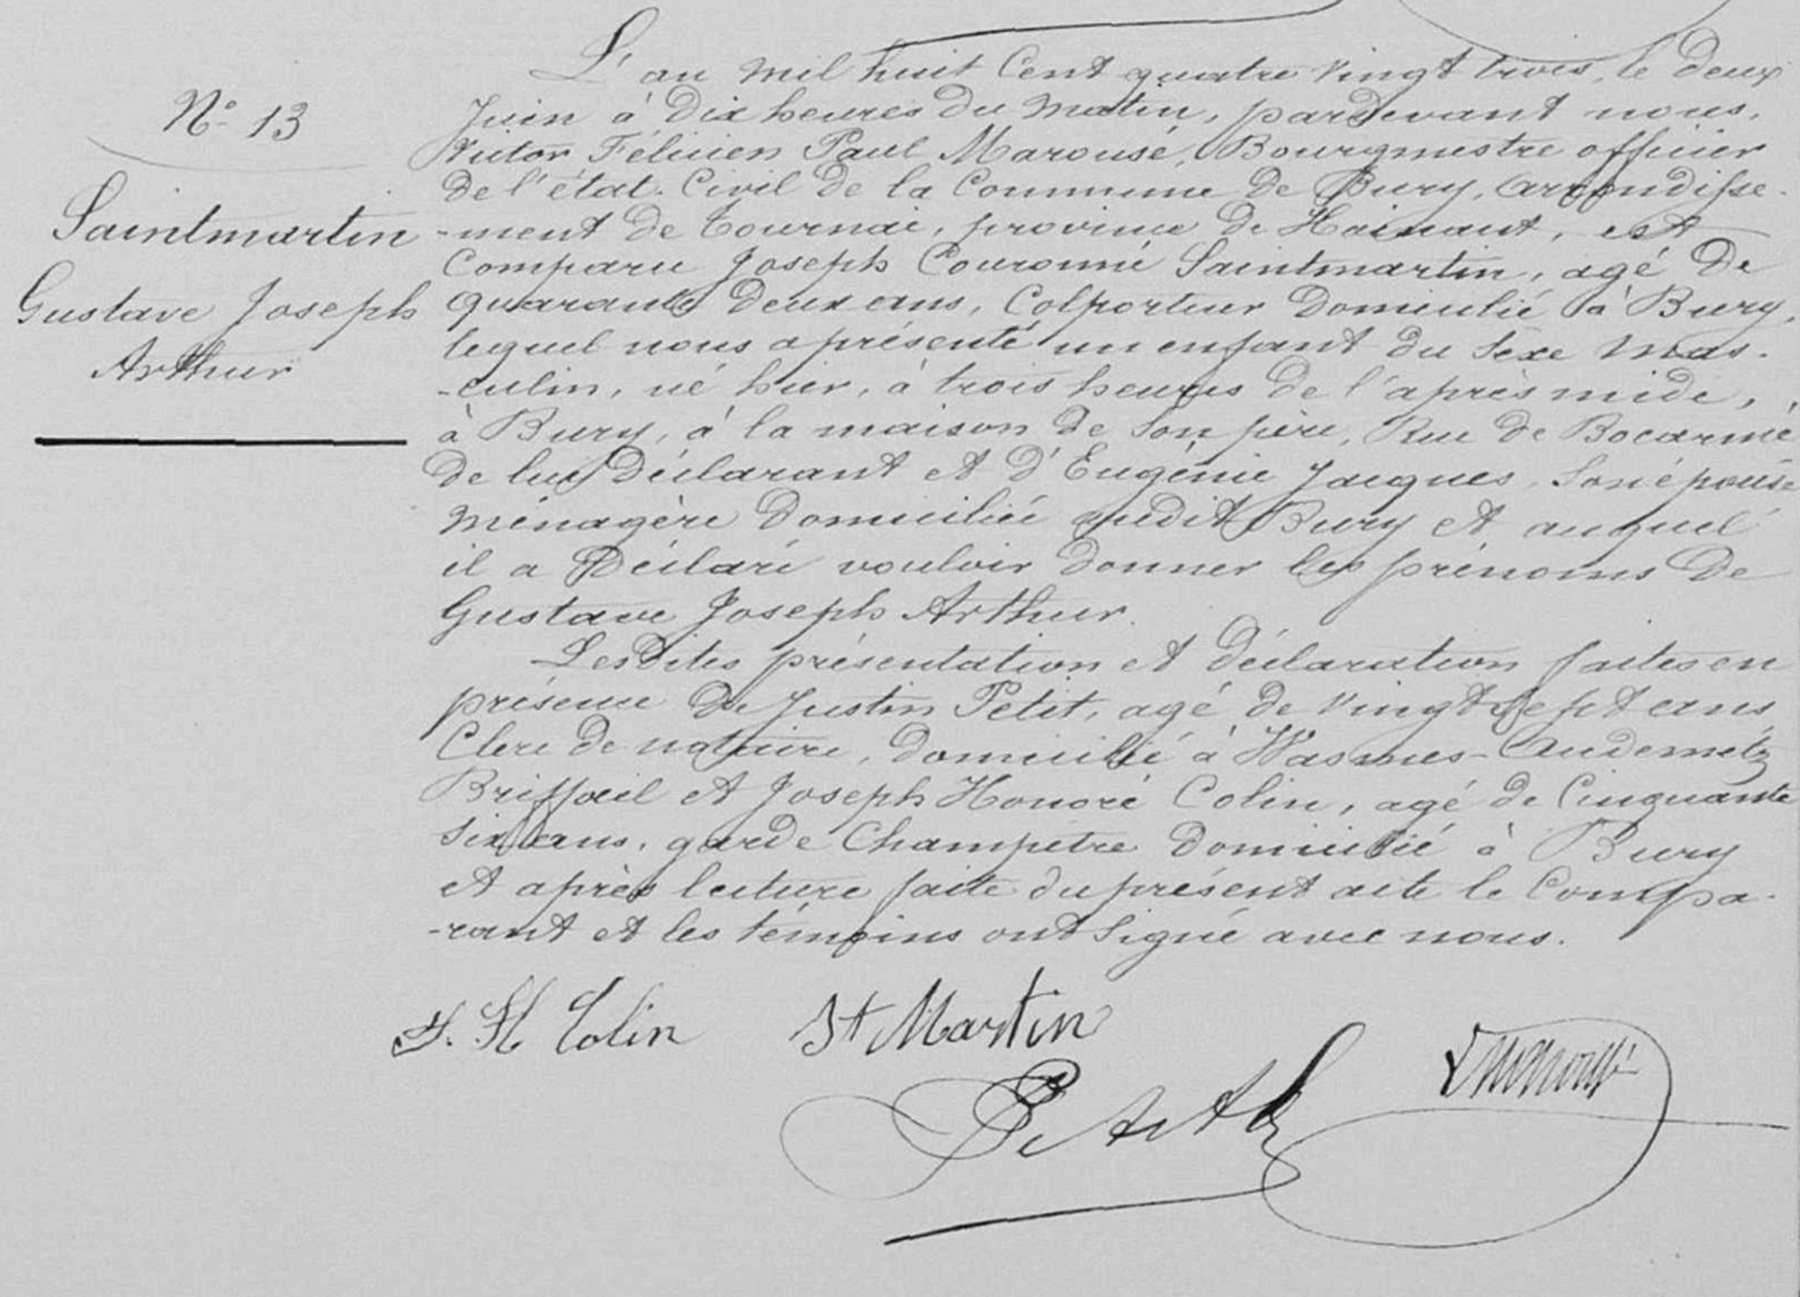 N° 13
Saintmartin
Gustave Joseph
Arthur
L'an mil huit Cent quatre vingt trois, le deux
Juin à Dix heures du Matin, pardevant nous,
Victor Félicien Paul Marousé, Bourgmestre officier
de l'état-Civil de la Commune de Bury, arrondisse-
-ment de Tournai, province de Hainaut, est
Comparu Joseph Couronné Saintmartin, agé de
quarante deux ans, Colporteur Domicilié à Bury,
lequel nous a présenté un enfant du Sexe Mas-
-culin, né hier, à trois heures de l'après midi,
à Bury, à la maison de Son père, Rue de Bocarmé
de lui Déclarant et d'Eugénie Jacques, Son épouse
Ménagère Domiciliée audit Bury et auquel
il a Déclaré vouloir donner les prénoms de
Gustave Joseph Arthur.
Lesdites présentation et déclaration faites en
présence de Justin Petit, agé de vingt sept ans
Clerc de notaire, domicilié à Wasmes-Audemetz
Briffœil et Joseph Honoré Colin, agé de Cinquante
Six ans, garde Champetre domicilié à Bury
et après lecture faite du présent acte le Compa-
-rant et les témoins ont Signé avec nous.
J. H Colin St Martin
Petit